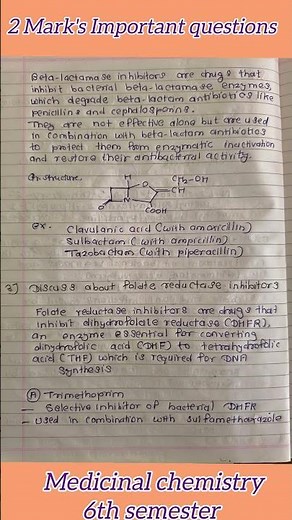 2 Mark's Important questions
Beta-lactamase inhibitors are drugs that
inhibit bacterial beta-lactamase enzymes,
which degrade beta-lactam antibiotics like
penicillins and cephalosporins.
They are not effective alone but are used
in combination with beta-lactam antibiotics
to protect them from enzymatic inactivation
and restore their antibacterial activity.
Ch. structure.
H
O
CH2-OH
CH
N
O
COOH
ex. - Clavulanic acid (with amoxicillin)
Sulbactam (with ampicillin)
Tazobactam (with piperacillin)
3) Discuss about folate reductase inhibitors
Folate reductase inhibitors are drugs that
inhibit dihydrofolate reductase (DHFR),
an enzyme essential for converting
dihydrofolic acid (DHF) to tetrahydrofolic
acid (THF) which is required for DNA
Synthesis
(A) Trimethoprim
— Selective inhibitor of bacterial DHFR
– Used in combination with sulfamethoxazole
Medicinal chemistry
6th semester